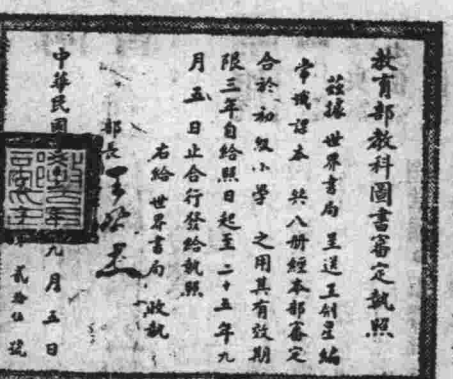 教育部教科圖書審定執照
茲據 世界書局 呈送王劍星編
常識課本 共八册經本部審定
合於 初級小學 之用其有效期
限三年自給照日起至二十五年九
月五日止合行發給執照
右給 世界書局 收執
部長 王世杰
中華民國 九月五日
貳拾伍號